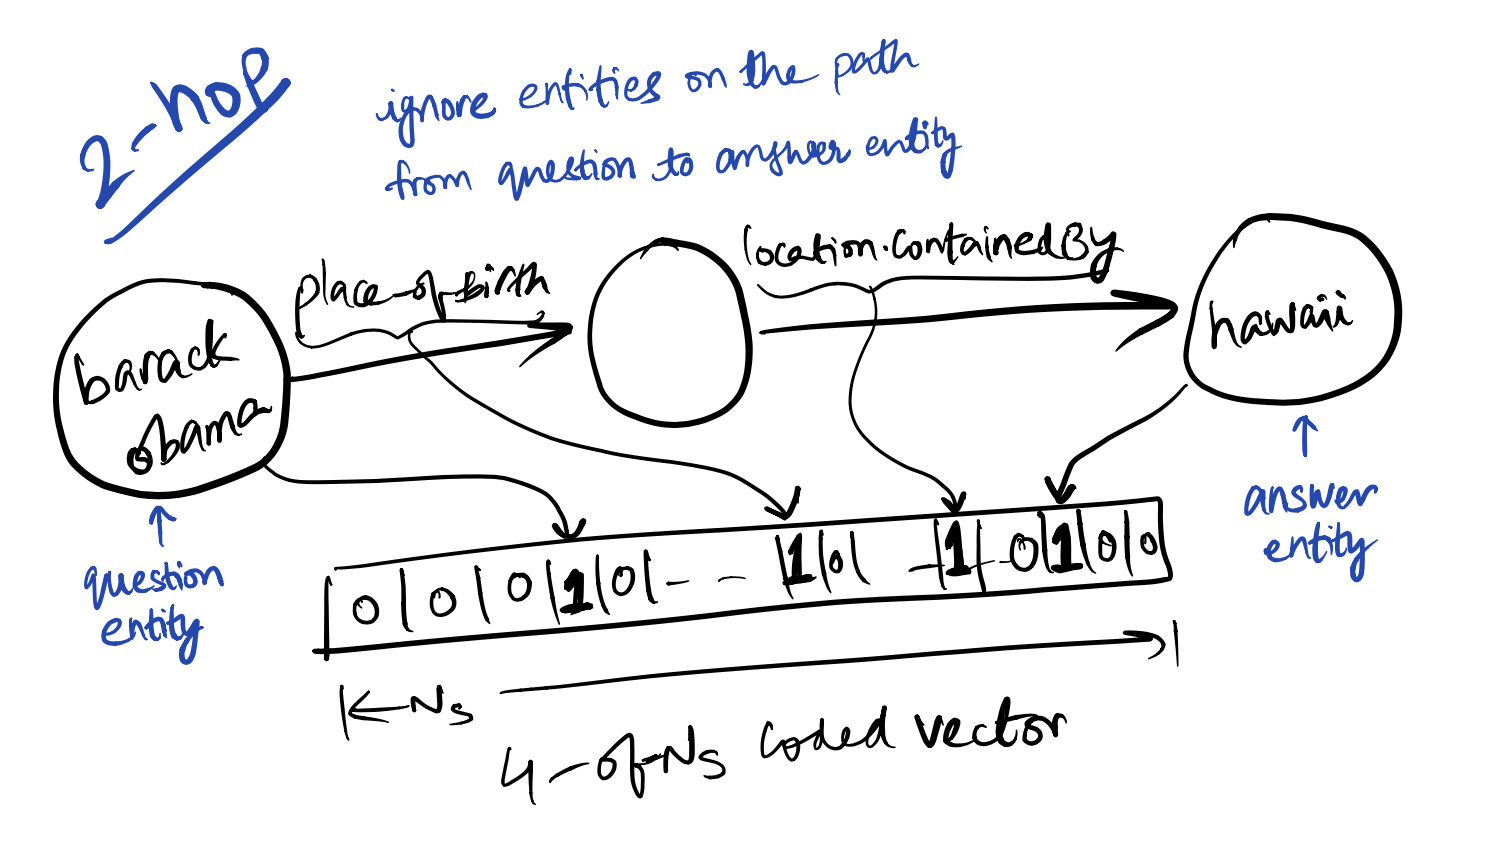 2-hop
ignore entities on the path
from question to answer entity
place-of-birth
location.containedBy
barack
obama
hawaii
question
entity
answer
entity
0 0 0 1 0 - - - 1 0 - 1 - 0 1 0 0
Ns
4-of-Ns coded vector